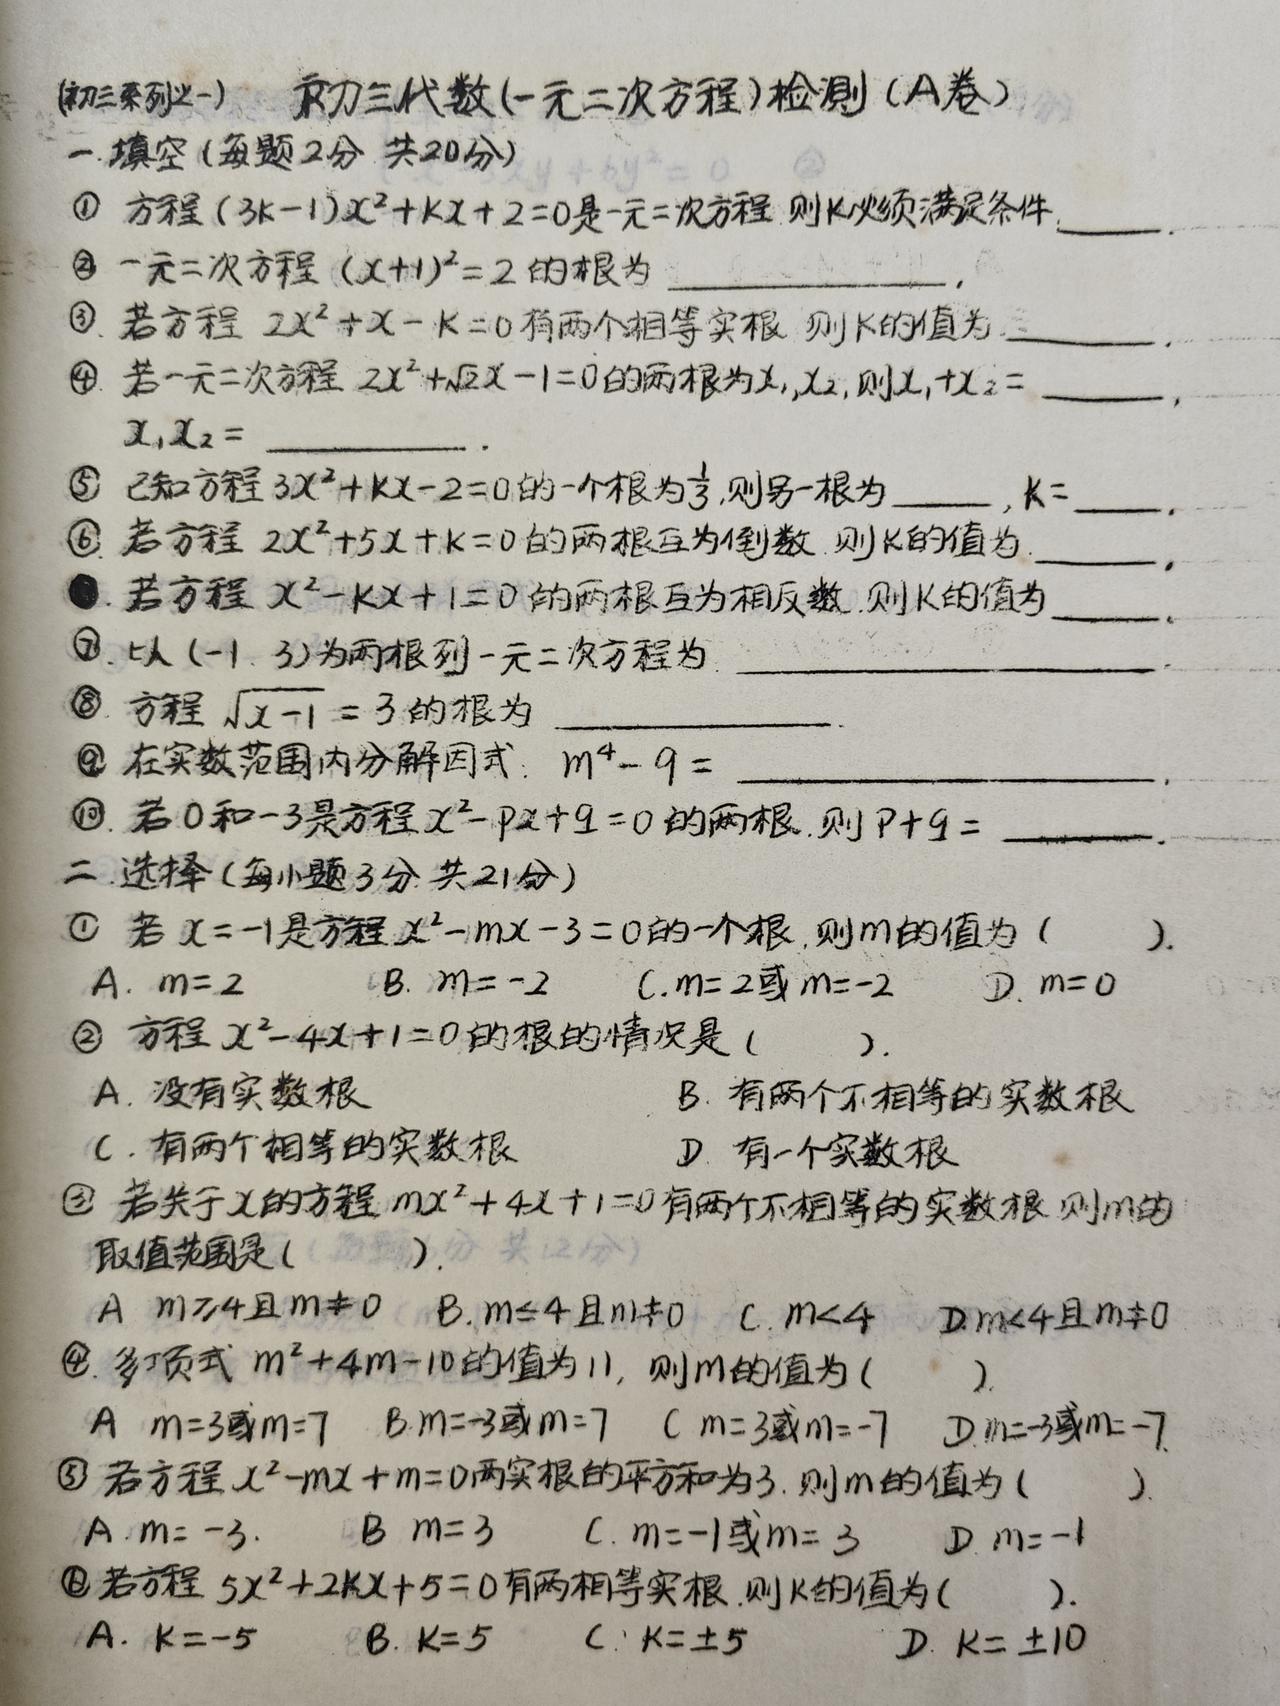 (初三系列之一) 初三代数(一元二次方程)检测(A卷)
一.填空(每题2分 共20分)
① 方程(3k-1)x²+kx+2=0是一元二次方程 则k必须满足条件______.
② 一元二次方程(x+1)²=2的根为______.
③.若方程 2x²+x-k=0有两个相等实根 则k的值为______.
④.若一元二次方程 2x²+√2x-1=0的两根为x₁,x₂,则x₁+x₂=______,
x₁x₂=______.
⑤ 已知方程3x²+kx-2=0的一个根为1/3,则另一根为______,k=______.
⑥.若方程 2x²+5x+k=0的两根互为倒数 则k的值为______.
若方程 x²-kx+1=0的两根互为相反数.则k的值为______.
⑦.以(-1.3)为两根列一元二次方程为______.
⑧.方程 √x-1=3的根为______.
⑨ 在实数范围内分解因式: m⁴-9=______.
⑩.若0和-3是方程x²-px+q=0的两根.则P+q=______.
二.选择(每小题3分 共21分)
① 若 x=-1是方程x²-mx-3=0的一个根,则m的值为( ).
A. m=2 B. m=-2 C.m=2或m=-2 D. m=0
② 方程 x²-4x+1=0的根的情况是( ).
A. 没有实数根 B. 有两个不相等的实数根
C. 有两个相等的实数根 D. 有一个实数根
③ 若关于x的方程 mx²+4x+1=0有两个不相等的实数根 则m的
取值范围是( ).
A m≥4且m≠0 B.m≤4且m≠0 C. m<4 D.m<4且m≠0
④.多项式 m²+4m-10的值为11, 则m的值为( ).
A m=3或m=7 B.m=-3或m=7 C m=3或m=-7 D.m=-3或m=-7.
⑤ 若方程 x²-mx+m=0两实根的平方和为3.则m的值为( ).
A.m=-3. B m=3 C. m=-1或m=3 D. m=-1
⑥若方程 5x²+2kx+5=0有两相等实根.则k的值为( ).
A. k=-5 B. k=5 C. k=±5 D. k=±10